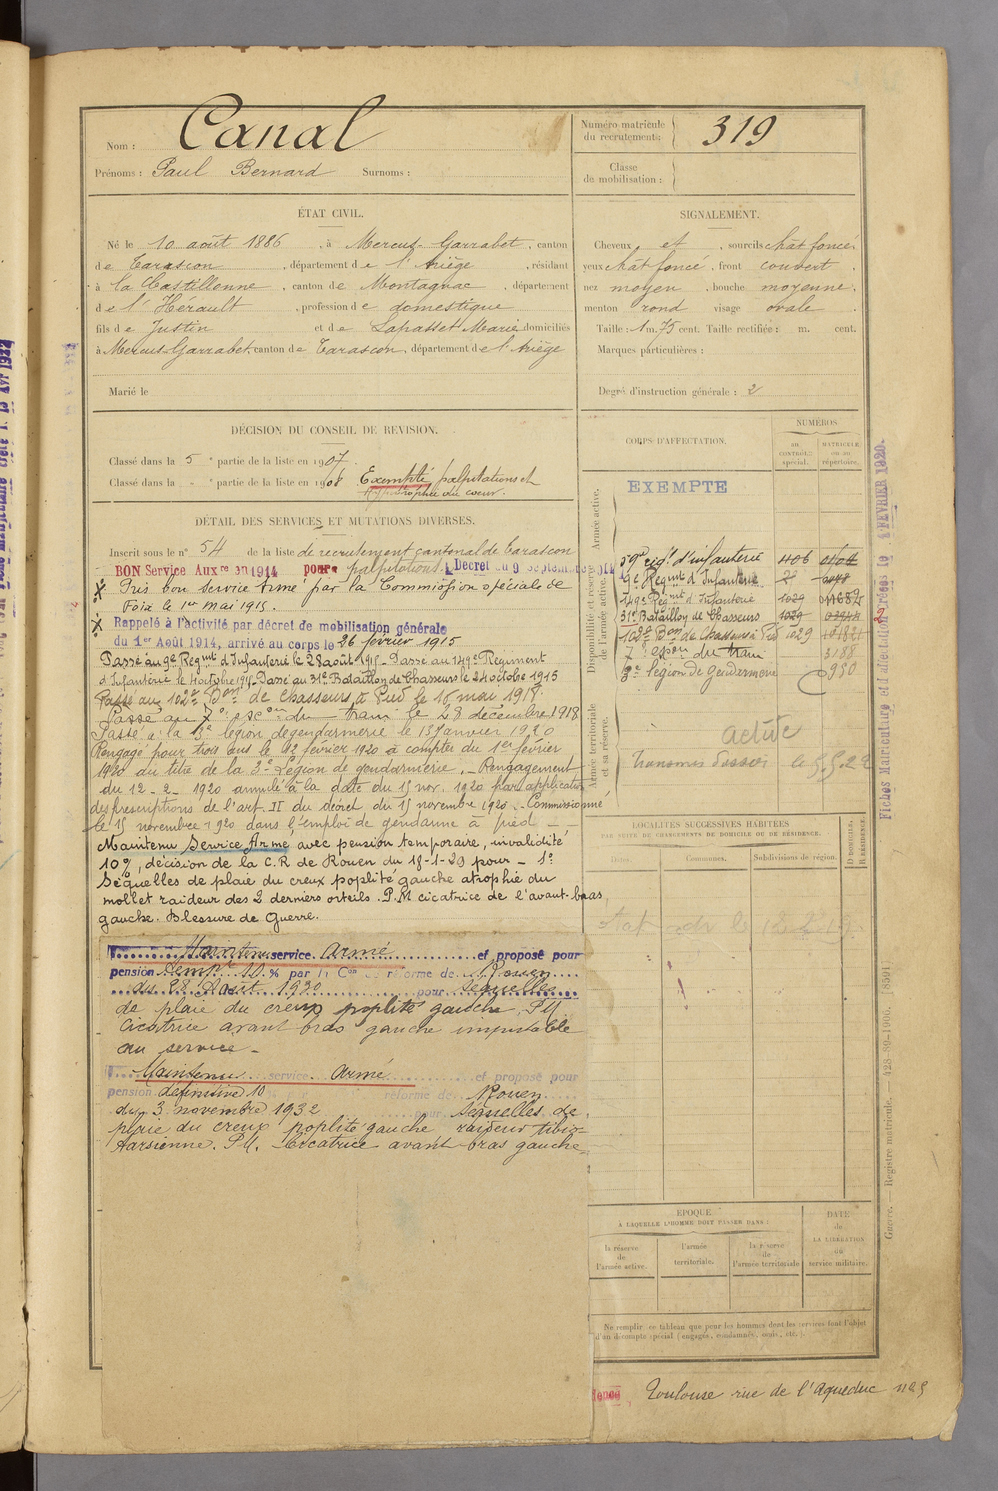 Nom : Canal
Prénoms : Paul Bernard Surnoms :
Numéro matricule du recrutement : 319
Classe de mobilisation :
ÉTAT CIVIL.
Né le 10 août 1886, à Mercus Garrabet, canton
de Tarascon, département de l'Ariège, résidant
à La Castillonne, canton de Montagnac, département
de l'Hérault, profession de domestique
fils de Justin et de Lapasset Marie domiciliés
à Mercus-Garrabet, canton de Tarascon, département de l'Ariège
Marié le
SIGNALEMENT.
Cheveux et, sourcils chât foncé,
yeux chât foncé, front couvert
nez moyen, bouche moyenne,
menton rond visage ovale.
Taille : 1 m. 75 cent. Taille rectifiée : m. cent.
Marques particulières :
Degré d'instruction générale : 2
DÉCISION DU CONSEIL DE REVISION.
Classé dans la 5e partie de la liste en 1907.
Classé dans la - e partie de la liste en 1908 Exempté palpitations et
hypertrophie du coeur.
DÉTAIL DES SERVICES ET MUTATIONS DIVERSES.
Inscrit sous le n° 54 de la liste de recrutement cantonal de Tarascon
BON Service Auxre en 1914 pour palpitations. Décret du 9 septembre 1914
Pris bon service armé par la Commission spéciale de
Foix le 1er mai 1915.
Rappelé à l'activité par décret de mobilisation générale
du 1er Août 1914, arrivé au corps le 26 février 1915
Passé au 9e Regmt d'Infanterie le 28 août 1915 - Passé au 149e Régiment
d'Infanterie le 4 octobre 1915 - Passé au 31e Bataillon de Chasseurs le 24 octobre 1915
Passé au 102e Bon de Chasseurs à Pied le 15 mai 1918.
Passé au 7e escon du train le 28 décembre 1918
Passé à la 3e légion de gendarmerie le 13 janvier 1920
Rengagé pour trois ans le 12 février 1920 à compter du 1er février
1920 au titre de la 3e Légion de gendarmerie. - Rengagement
du 12-2-1920 annulé à la date du 15 nov. 1920 par application
des prescriptions de l'art. II du décret du 15 novembre 1920. - Commissionné
le 15 novembre 1920 dans l'emploi de gendarme à pied -
Maintenu Service Armé avec pension temporaire, invalidité
10%, décision de la C.R de Rouen du 15-1-29 pour - 1°
Séquelles de plaie du creux poplité gauche atrophie du
mollet raideur des 2 derniers orteils. P.M cicatrice de l'avant-bras
gauche. Blessure de Guerre.
Maintenu service Armé et proposé pour
pension temp. 10 % par la Con de réforme de Rouen
du 28 Août 1930 pour Séquelles
de plaie du creux poplité gauche, P.M
Cicatrice avant bras gauche imputable
au service -
Maintenu service armé et proposé pour
pension définitive 10 réforme de Rouen
du 3 novembre 1932 pour séquelles de
plaie du creux poplité gauche raideur tibio-
tarsienne. P.M. Cicatrice avant bras gauche
CORPS D'AFFECTATION.
NUMÉROS
au CONTROLE spécial.
MATRICULE ou au répertoire.
Armée active.
EXEMPTE
Disponibilité et réserve de l'armée active.
59e régt d'infanterie 406
9e Régmt d'Infanterie
149e Régmt d'Infanterie 1029 11687
31e Bataillon de Chasseurs 1029
102e Bon de Chasseurs à Pied 1029
7e escon du train 3188
3e Légion de Gendarmerie 950
Armée territoriale et sa réserve.
active
Transmis dossier le 5.5.22
LOCALITÉS SUCCESSIVES HABITÉES
PAR SUITE DE CHANGEMENTS DE DOMICILE OU DE RÉSIDENCE.
Dates. Communes. Subdivisions de région. D DOMICILE, R RÉSIDENCE.
ÉPOQUE
À LAQUELLE L'HOMME DOIT PASSER DANS :
la réserve de l'armée active.
l'armée territoriale.
la réserve de l'armée territoriale
DATE de LA LIBÉRATION du service militaire.
Ne remplir ce tableau que pour les hommes dont les services font l'objet
d'un décompte spécial (engagés, condamnés, omis, etc.).
Toulouse rue de l'Aqueduc n°
Fiches Matricule et d'affectation créées le 4 FEVRIER 1920.
Guerre. — Registre matricule. — 428-89-1906. [8591]